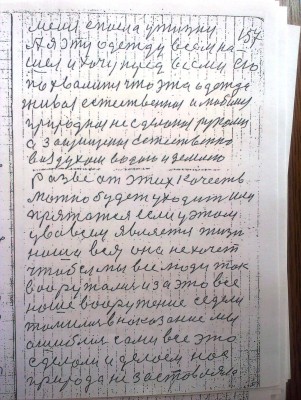 157
А я эту одежду всем на
шел и хочу перед всеми его
похвалити что эта одежда
живая естественная и любима
природная не сделана руками
а защищена естественно
воздухом водою и землею
разве от этих качеств
можно будет уходит или
прятатся если у этом
у во всем является жизн
наша вся она не хочет
чтобы мы все люди так
вооружали и за это все
наше вооружение сидели
томили в наказание мы
ошиблис сами все это
сделали и делаем нас
природа не заставляла